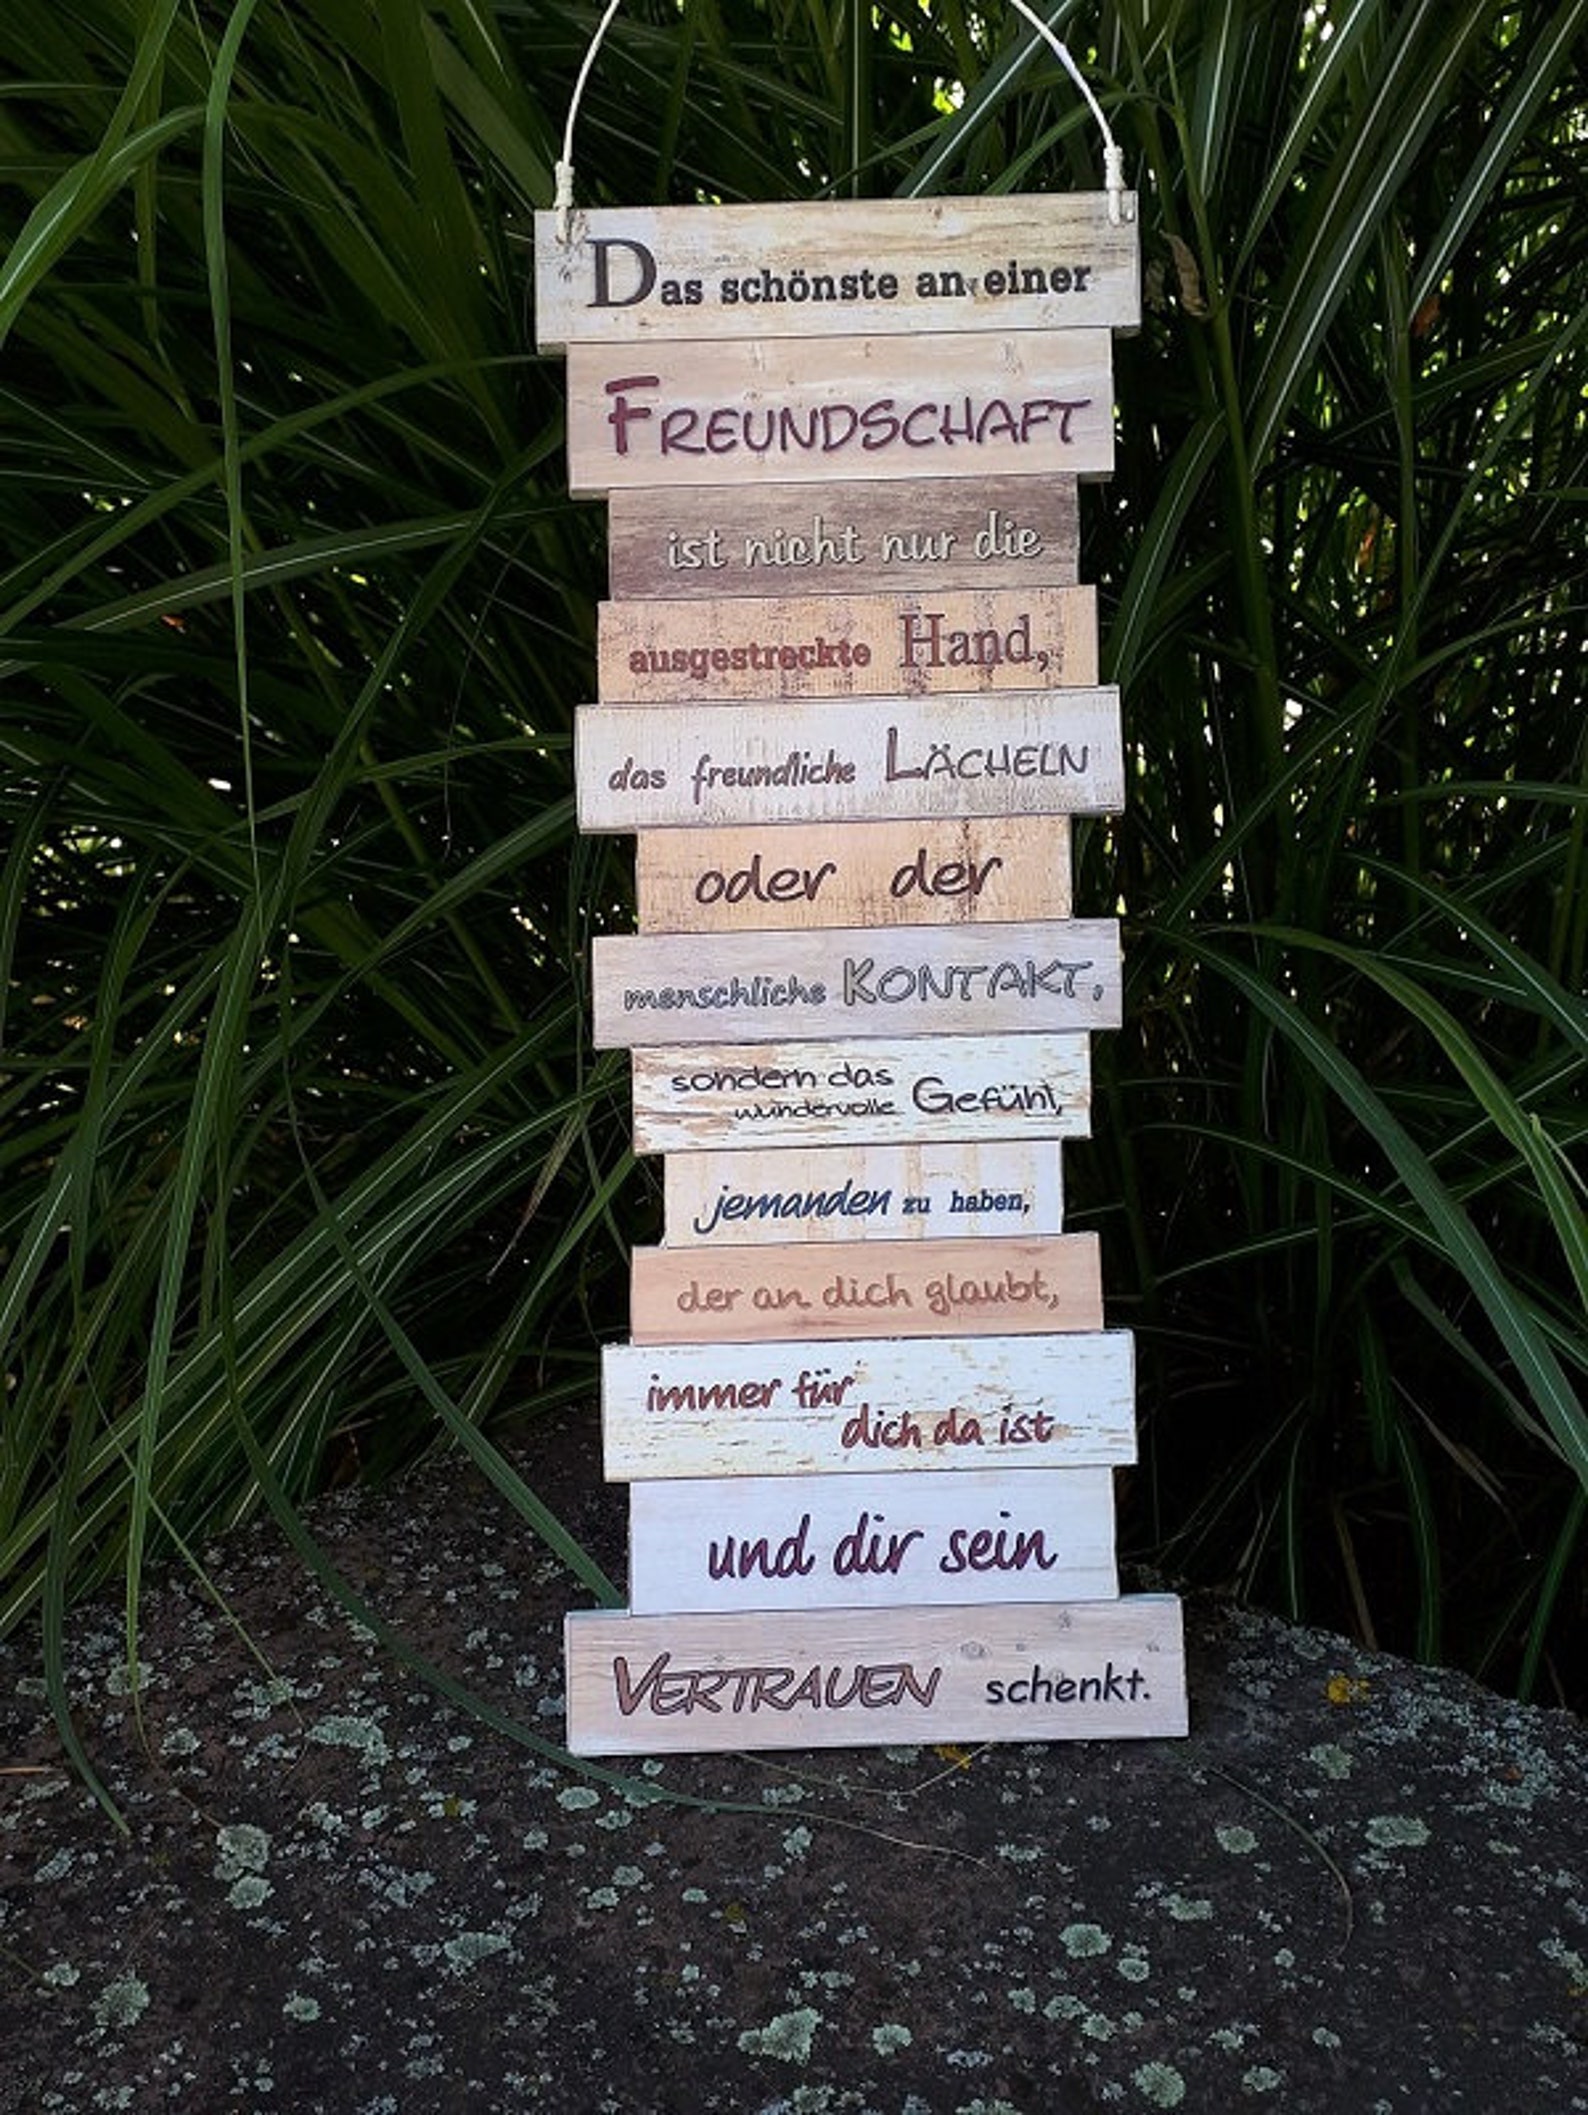 Das schönste an einer
FREUNDSCHAFT
ist nicht nur die
ausgestreckte Hand,
das freundliche LÄCHELN
oder der
menschliche KONTAKT,
sondern das
wundervolle Gefühl,
jemanden zu haben,
der an dich glaubt,
immer für
dich da ist
und dir sein
VERTRAUEN schenkt.